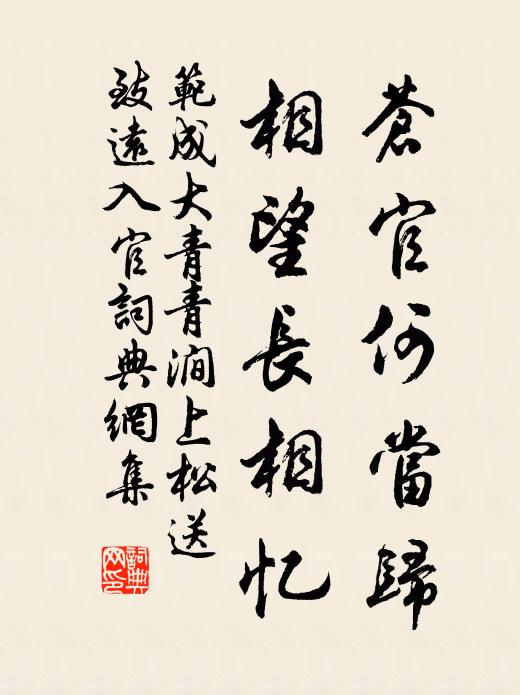 蒼官何當歸
相望長相忆
範成大青青澗上松送
致遠入官詞典網集
詞典
网印